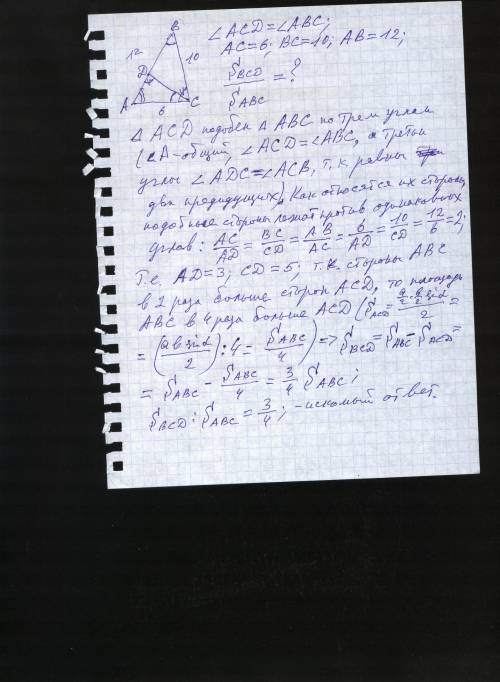 B
∠ACD=∠ABC;
AC=6; BC=10; AB=12;
12
10
D
S_BCD / S_ABC = ?
A
6
C
Δ ACD подобен Δ ABC по трем углам
(∠A-общий, ∠ACD=∠ABC, а третьи
углы ∠ADC=∠ACB, т.к. равны
два предидущих). Как относятся их стороны,
подобные стороны лежат против одинаковых
углов: AC/AD = BC/CD = AB/AC = 6/AD = 10/CD = 12/6 = 2;
Т.е. AD=3; CD=5; т.к. стороны ABC
в 2 раза больше сторон ACD, то площадь
ABC в 4 раза больше ACD (S_ACD = (a/2 · b/2 sin α)/2 =
= (a b sin α / 2) : 4 = S_ABC/4) => S_BCD = S_ABC - S_ACD =
= S_ABC - S_ABC/4 = 3/4 S_ABC;
S_BCD : S_ABC = 3/4; - искомый ответ.